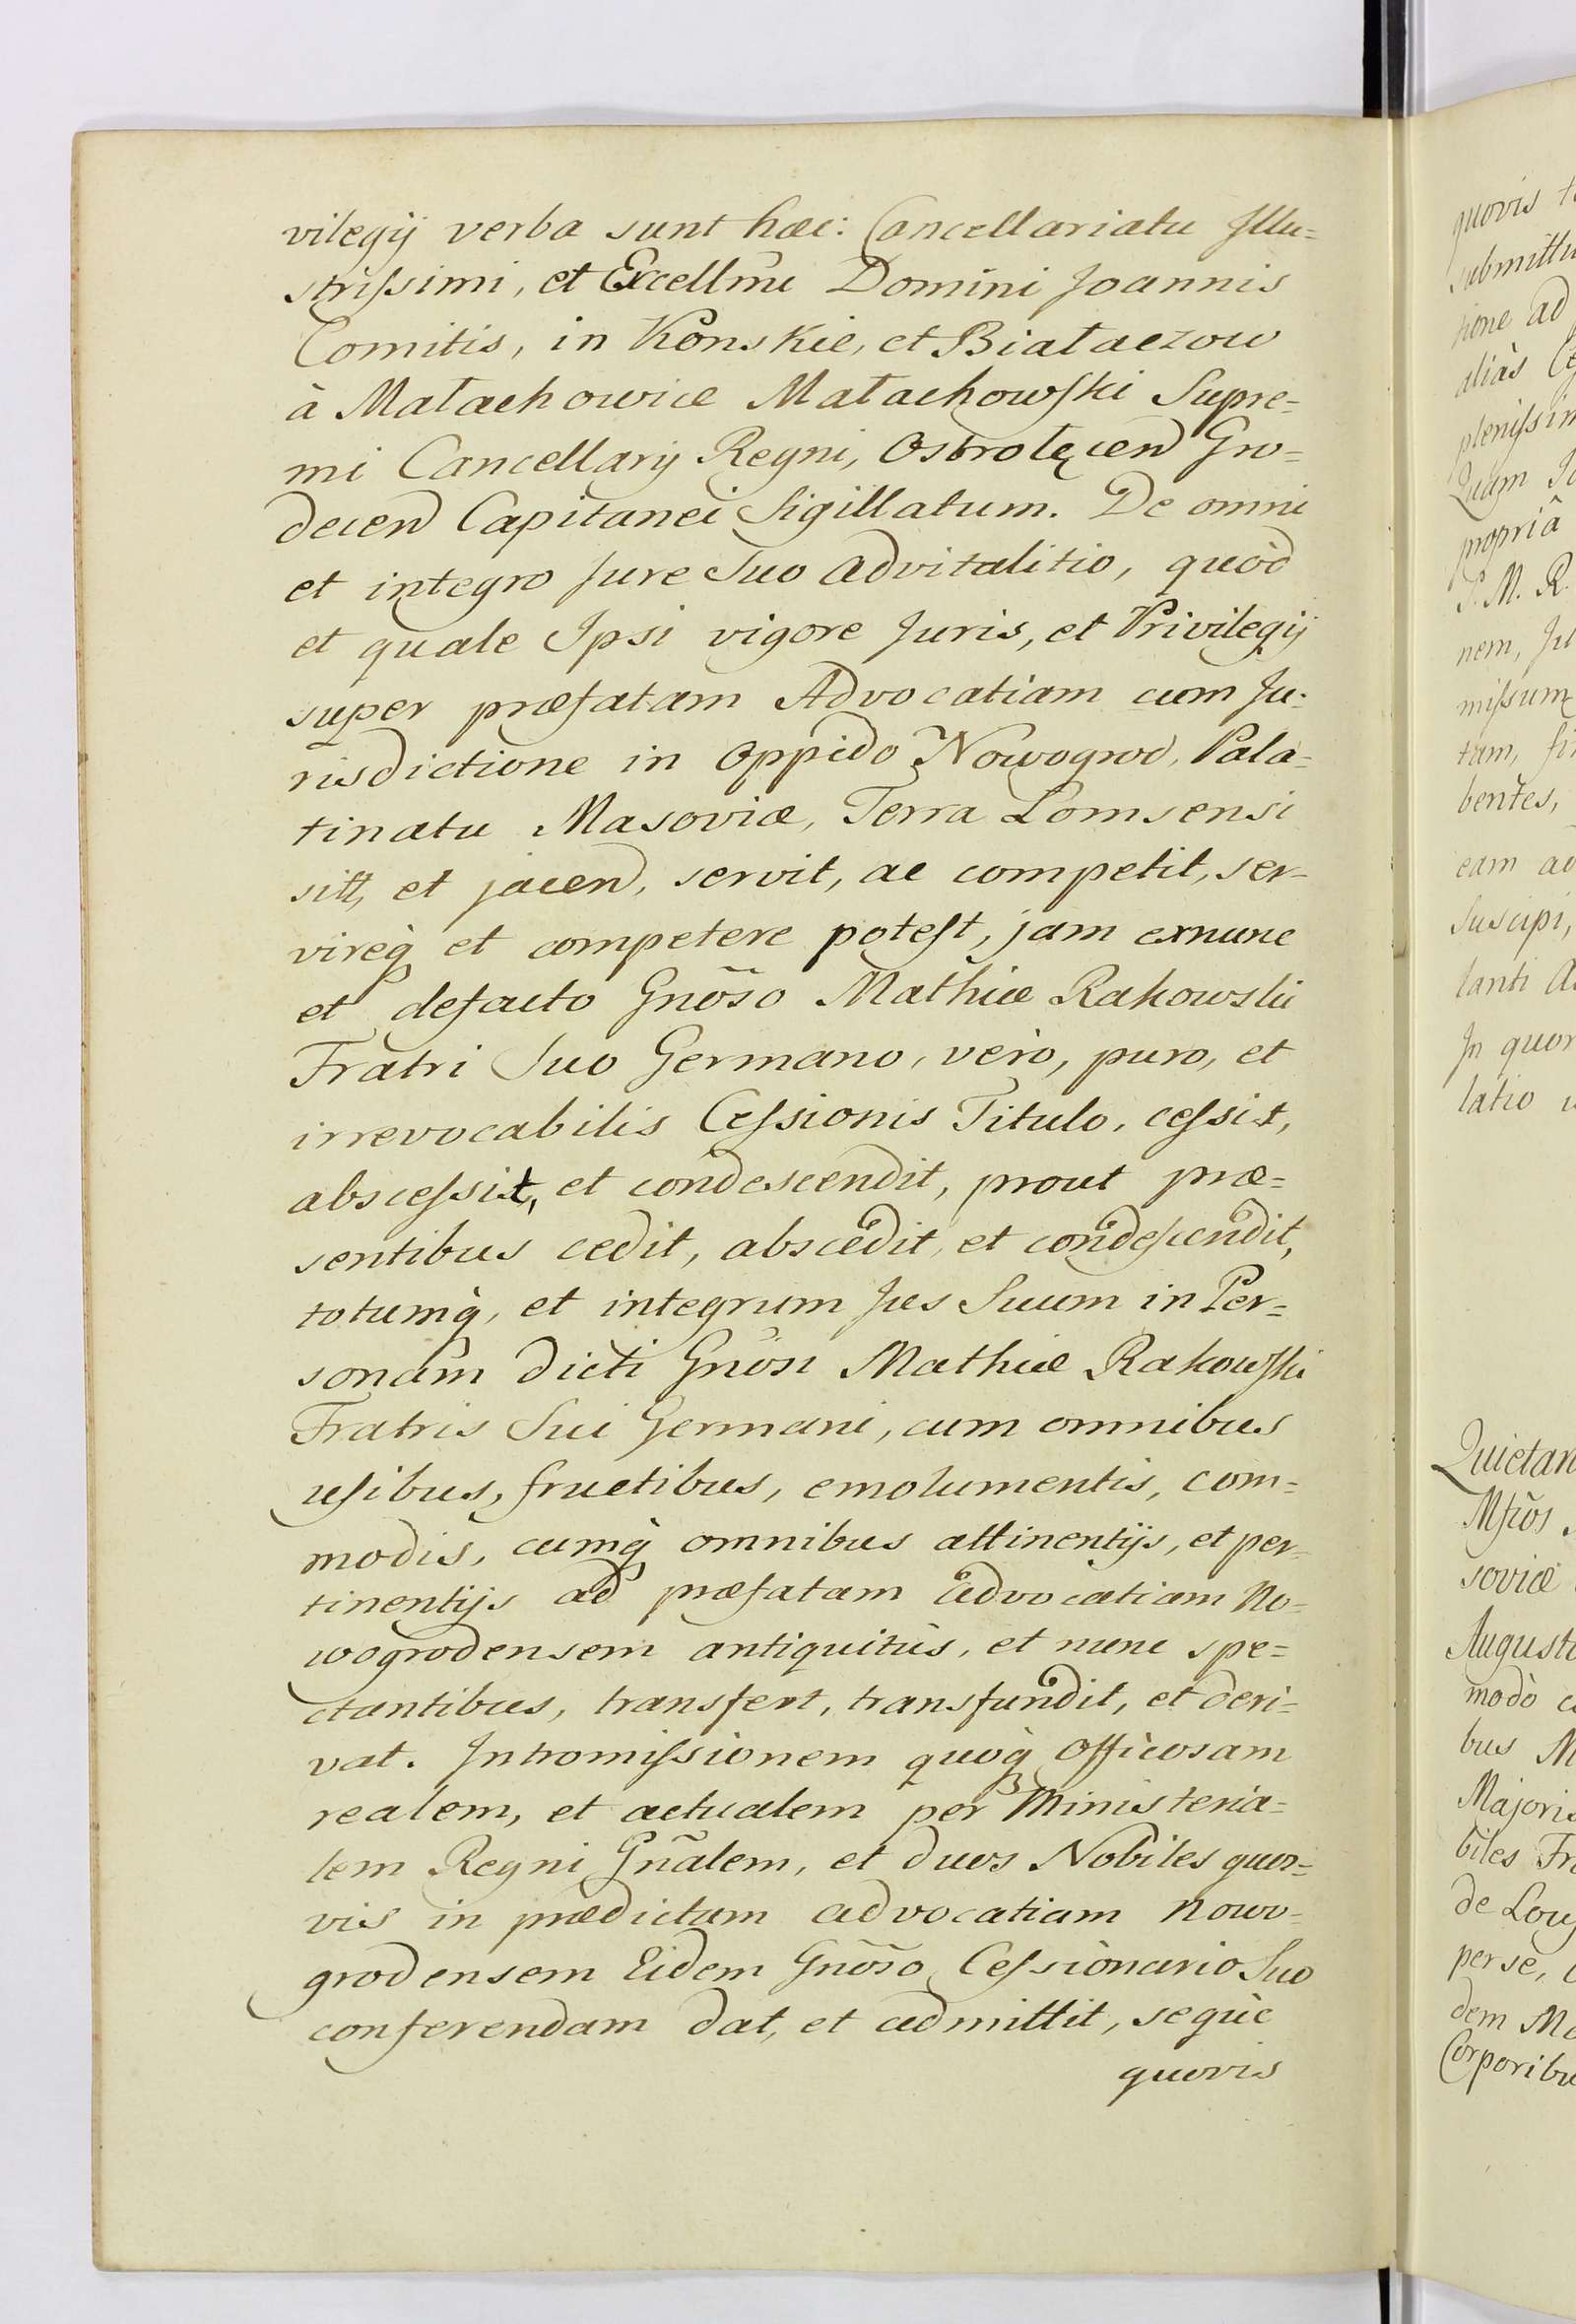 vilegij verba sunt hæc: Cancellariatu Jllu=
strissimi, et Excellmi Domini Joannis
Comitis, in Konskie, et Białaczow
à Małachowice Małachowski Supre=
mi Cancellarij Regni, Ostrołęcen Gro=
decen Capitanei Sigillatum. De omni
et integro Jure Suo advitalitio, quòd
et quale Ipsi vigore Juris, et Privilegij
super præfatam Advocatiam cum Ju=
risdictione in Oppido Nowogrod, Pala=
tinatu Masoviæ, Terra Lomsensi
sitt, et jacen, servit, ac competit, ser=
vireq̀ et competere potest, jam exnunc
et defacto Gnõso Mathiæ Rakowski
Fratri Suo Germano, vero, puro, et
irrevocabilis Cessionis Titulo, cessit,
abscessit, et condescendit, prout præ=
sentibus cedit, abscedit, et condescendit,
totumq̀, et integrum Jus Suum in Per=
sonam dicti Gnõsi Mathiæ Rakowski
Fratris Sui Germani, cum omnibus
usibus, fructibus, emolumentis, com=
modis, cumq̀ omnibus attinentijs, et per=
tinentijs ad præfatam Advocatiam No=
wogrodensem antiquitùs, et nunc spe=
ctantibus, transfert, transfundit, et deri=
vat. Intromissionem quoq̀ Officiosam
realem, et actualem per Ministeria=
lem Regni Gñalem, et duos Nobiles quos=
vis in prædictam advocatiam Nowo=
grodensem Eidem Gnõso Cessionario Suo
conferendam dat, et admittit, seq̀ue
quovis
quovis
submittu
tione ad
aliàs
plenissim
Quam
propriâ
S. M. R.
nem, Ju
missum
tam,
bentes,
eam ad
suscipi,
lanti
In quor
latio
Quietan
soviæ
Augusto
modò
bus M
Majoris
biles
de
per se,
dem
Corporibu